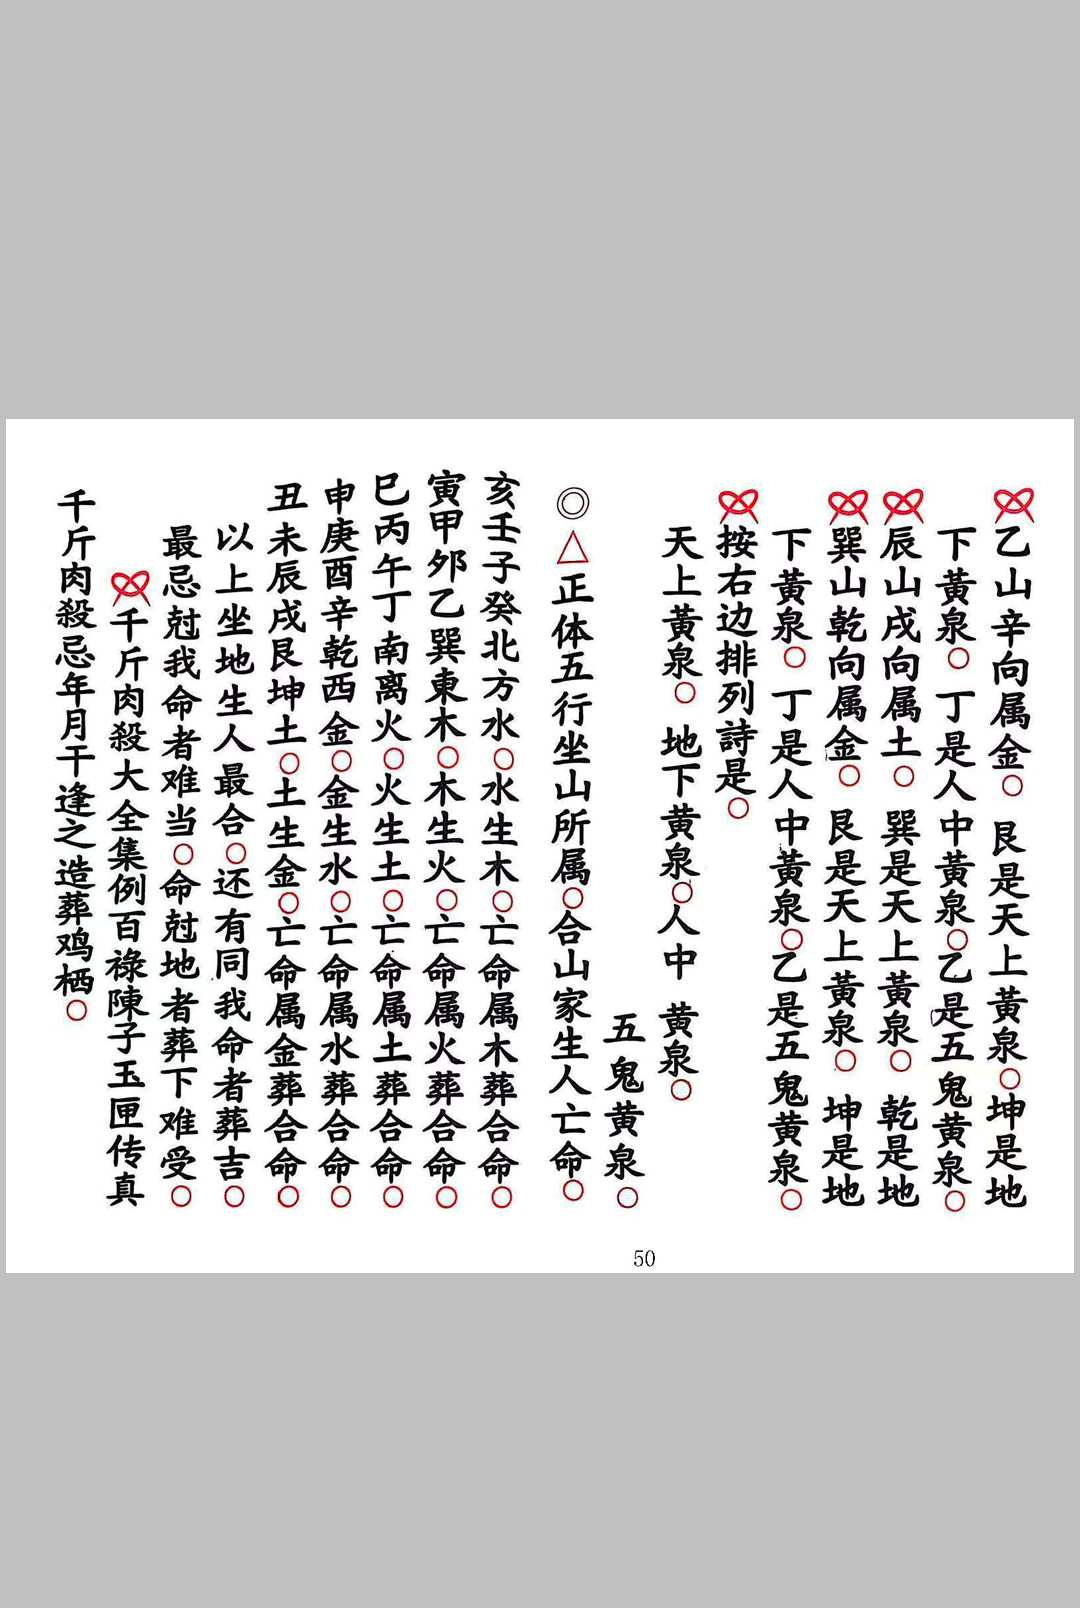 乙山辛向属金○艮是天上黃泉○坤是地
下黃泉○丁是人中黃泉○乙是五鬼黃泉○
辰山戌向属土○巽是天上黃泉○乾是地
巽山乾向属金○艮是天上黃泉○坤是地
下黃泉○丁是人中黃泉○乙是五鬼黃泉○
按右边排列詩是○
天上黃泉○地下黃泉○人中黃泉○
五鬼黃泉○
◎△正体五行坐山所属○合山家生人亡命○
亥壬子癸北方水○水生木○亡命属木葬合命○
寅甲夘乙巽東木○木生火○亡命属火葬合命○
巳丙午丁南离火○火生土○亡命属土葬合命○
申庚酉辛乾西金○金生水○亡命属水葬合命○
丑未辰戌艮坤土○土生金○亡命属金葬合命○
以上坐地生人最合○还有同我命者葬吉○
最忌尅我命者难当○命尅地者葬下难受○
千斤肉殺大全集例百祿陳子玉匣传真
千斤肉殺忌年月干逢之造葬鸡栖○
50